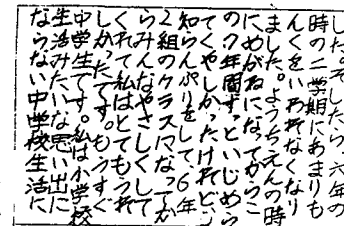 した。そしたら、六年の
時の二学期にあまりも
んくをいわれなくなり
ました。ようちえんの時
にめがねになってからこ
の7年間ずっといじめら
れてくやしかったけれど、
知らんぷりをして、6年
2組のクラスになってか
らみんなやさしくして
くれて私はとてもうれ
しかったです。もうすぐ
中学生です。私は小学校
生活みたいな思い出に
ならない中学校生活に